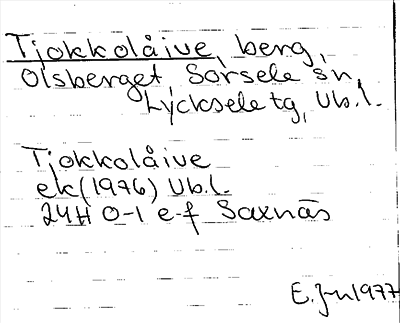 Tjokkolåive, berg,
Olsberget, Sorsele sn,
Lycksele tg, Vb.l.
Tjokkolåive
ek (1976) Vb.l.
24H 0-1 e-f Saxnäs
E. 1977